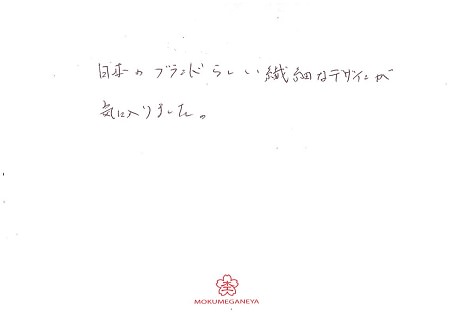 日本のブランドらしい繊細なデザインが
気に入りました。
MOKUMEGANEYA